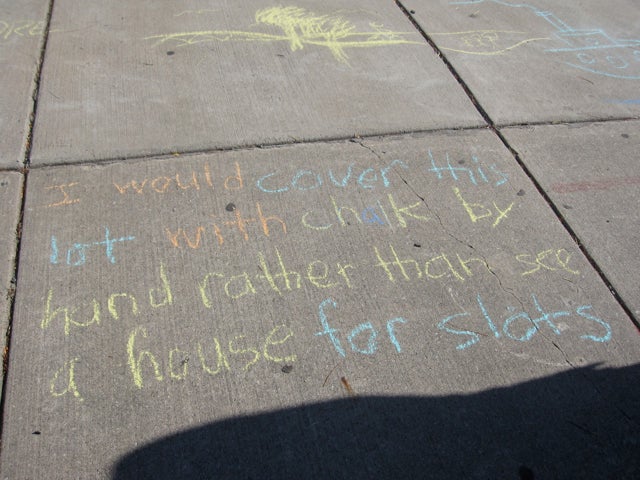 I would cover this
lot with chalk by
hand rather than see
a house for slots